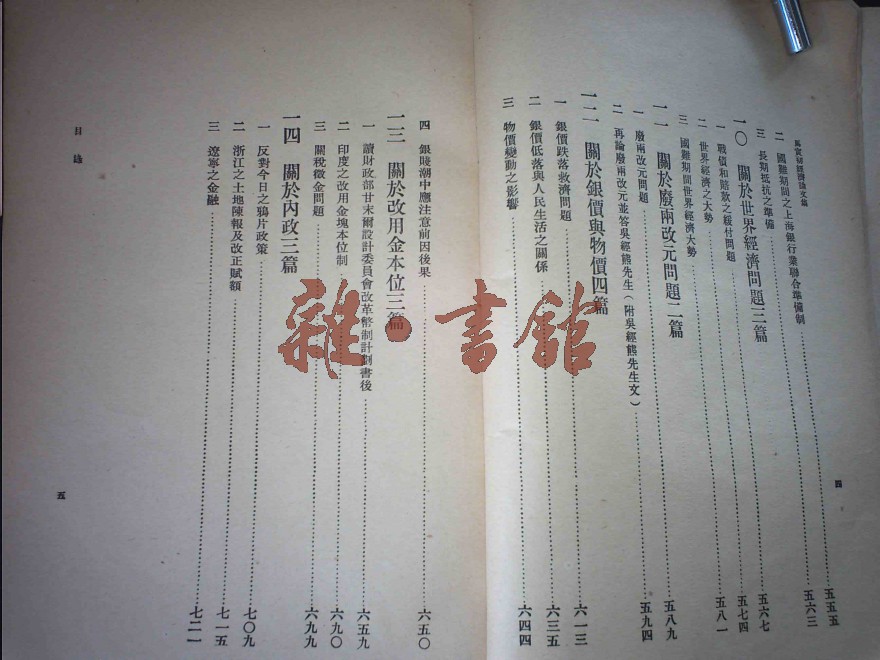 馬寅初經濟論文集
二 國難期間之上海銀行業聯合準備制……五五五
三 長期抵抗之準備……五六三
一〇 關於世界經濟問題三篇
一 戰債和賠款之緩付問題……五六七
二 世界經濟之大勢……五七四
三 國難期間世界經濟大勢……五八一
一一 關於廢兩改元問題二篇
一 廢兩改元問題……五八九
二 再論廢兩改元並答吳經熊先生(附吳經熊先生文)……五九四
一二 關於銀價與物價四篇
一 銀價跌落救濟問題……六一三
二 銀價低落與人民生活之關係……六三五
三 物價變動之影響……六四四
四
四 銀賤潮中應注意前因後果……六五〇
一三 關於改用金本位三篇
一 讀財政部甘末爾設計委員會改革幣制計劃書後……六五九
二 印度之改用金塊本位制……六九〇
三 關稅徵金問題……六九九
一四 關於內政三篇
一 反對今日之鴉片政策……七〇九
二 浙江之土地陳報及改正賦額……七一五
三 遼寧之金融……七二一
目錄
五
雜·書館